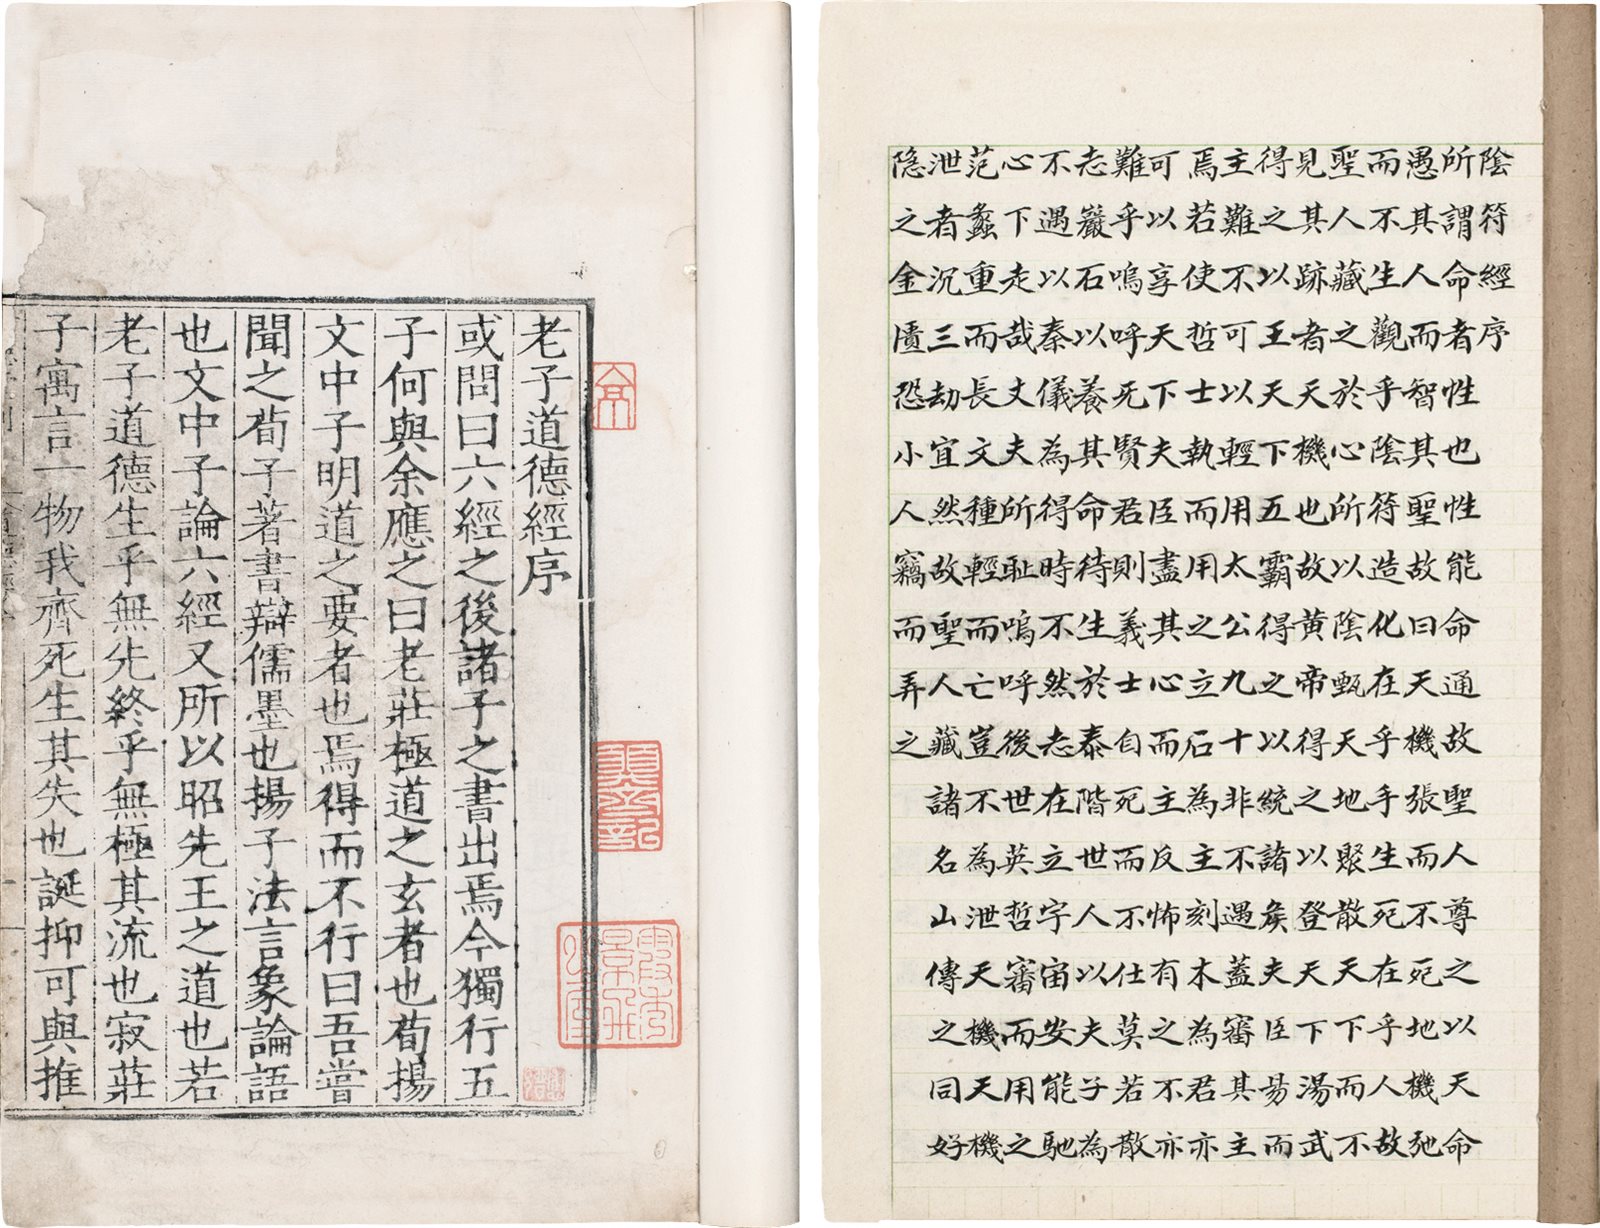 老子道德經序
或問曰六經之後諸子之書出焉今獨行五
子何與余應之曰老莊極道之玄者也荀揚
文中子明道之要者也焉得而不行曰吾嘗
聞之荀子著書辯儒墨也揚子法言象論語
也文中子論六經又所以昭先王之道也若
老子道德生乎無先終乎無極其流也寂莊
子寓言一物我齊死生其失也誕抑可與推
陰符經序
所謂命者性也性能命通故聖人尊之以天命
愚其人而智其聖故曰天機張而不死地機弛
而不生觀乎陰符造化在乎手生死在乎人故
聖人藏之於心所以陰甄天地聚散天下而不
見其跡者天機也故黄帝得之以登天下湯武
得之以王天下五霸得之以統諸矦夫臣易而
主難不可以輕用太公九十非不遇蓋審其主
焉若使哲士執而用之立石為主刻本為君亦
可以享天下夫臣盡其心而主反怖有之不亦
難乎嗚呼死賢君則義士自死而不仕莫若散
志巖石以養其命待生於泰階世人以夫子為
不遇以秦儀為得時不然志在立宇宙安能馳
心下走哉丈夫所耻嗚呼後世英哲審而用之
范蠡重而長文種輕而亡豈不為泄天機天機
泄者沉三劫宜然故聖人藏諸名山傳之同好
隐之金匱恐小人竊而弄之